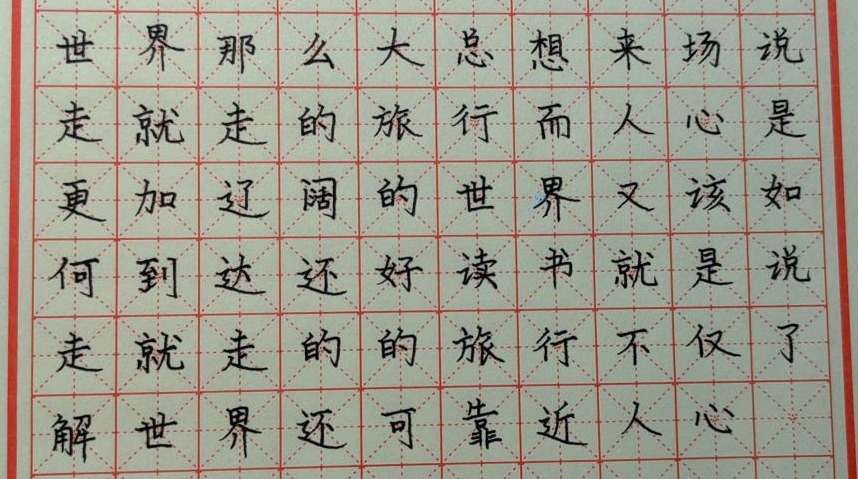 世界那么大总想来场说
走就走的旅行而人心是
更加辽阔的世界又该如
何到达还好读书就是说
走就走的的旅行不仅了
解世界还可靠近人心